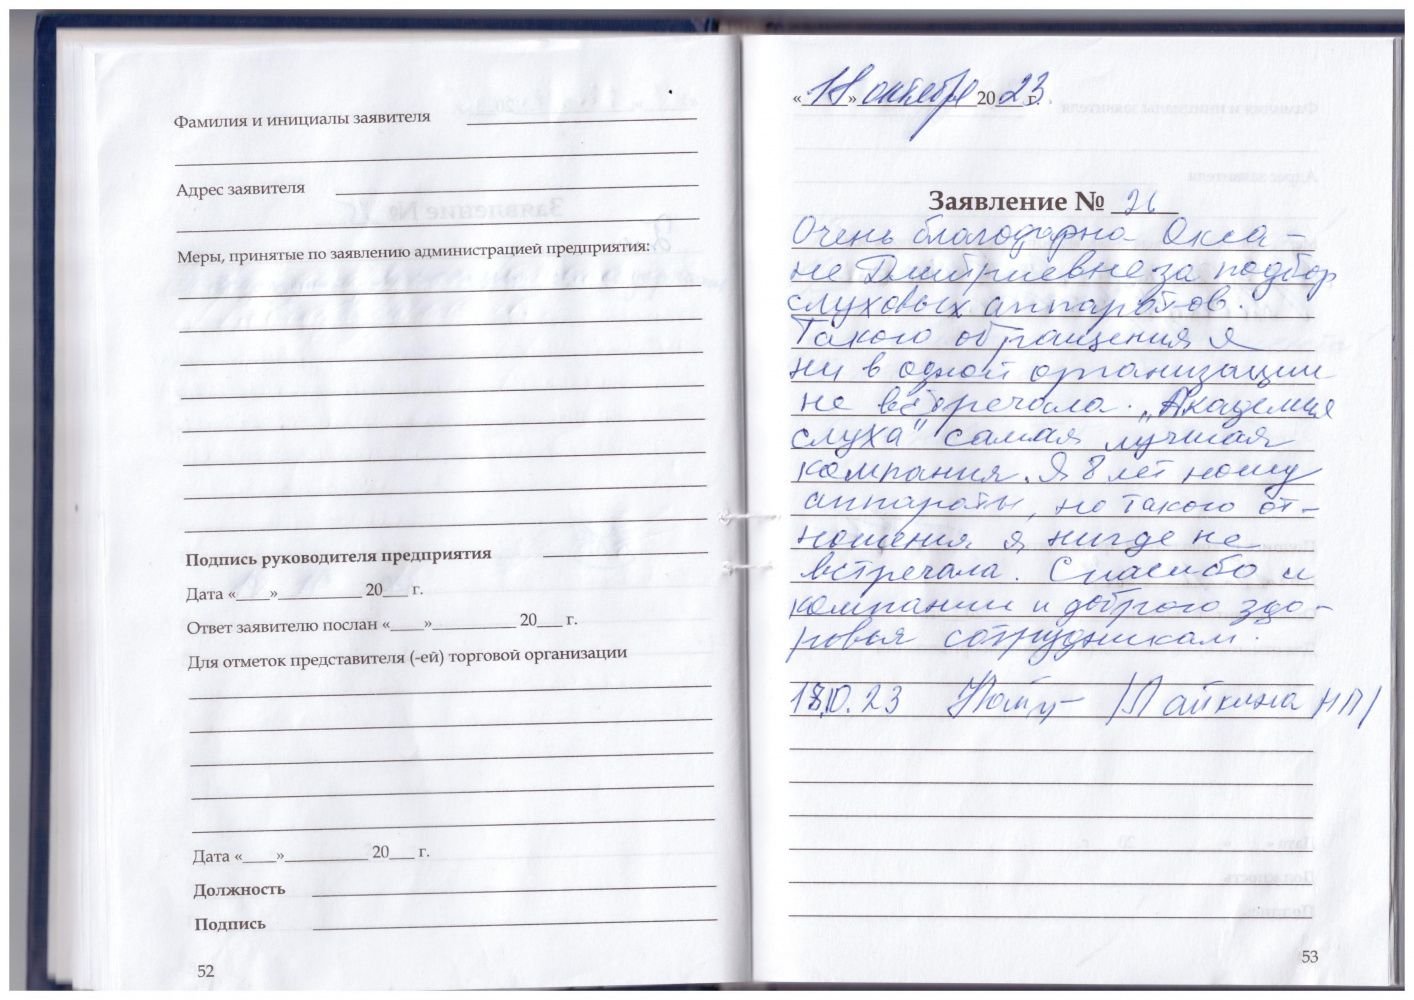 Фамилия и инициалы заявителя
Адрес заявителя
Меры, принятые по заявлению администрацией предприятия:
Подпись руководителя предприятия
Дата «____»__________ 20___ г.
Ответ заявителю послан «____»__________ 20___ г.
Для отметок представителя (-ей) торговой организации
Дата «____»__________ 20___ г.
Должность
Подпись
52
«18» октября 2023 г.
Заявление № 26
Очень благодарна Окса-
не Дмитриевне за подбор
слуховых аппаратов.
Такого обращения я
ни в одной организации
не встречала. „Академия
слуха" самая лучшая
компания. Я 8 лет ношу
аппараты, но такого от-
ношения я нигде не
встречала. Спасибо и
компании и доброго здо-
ровья сотрудникам.
18.10.23 /Лайкина НП/
53